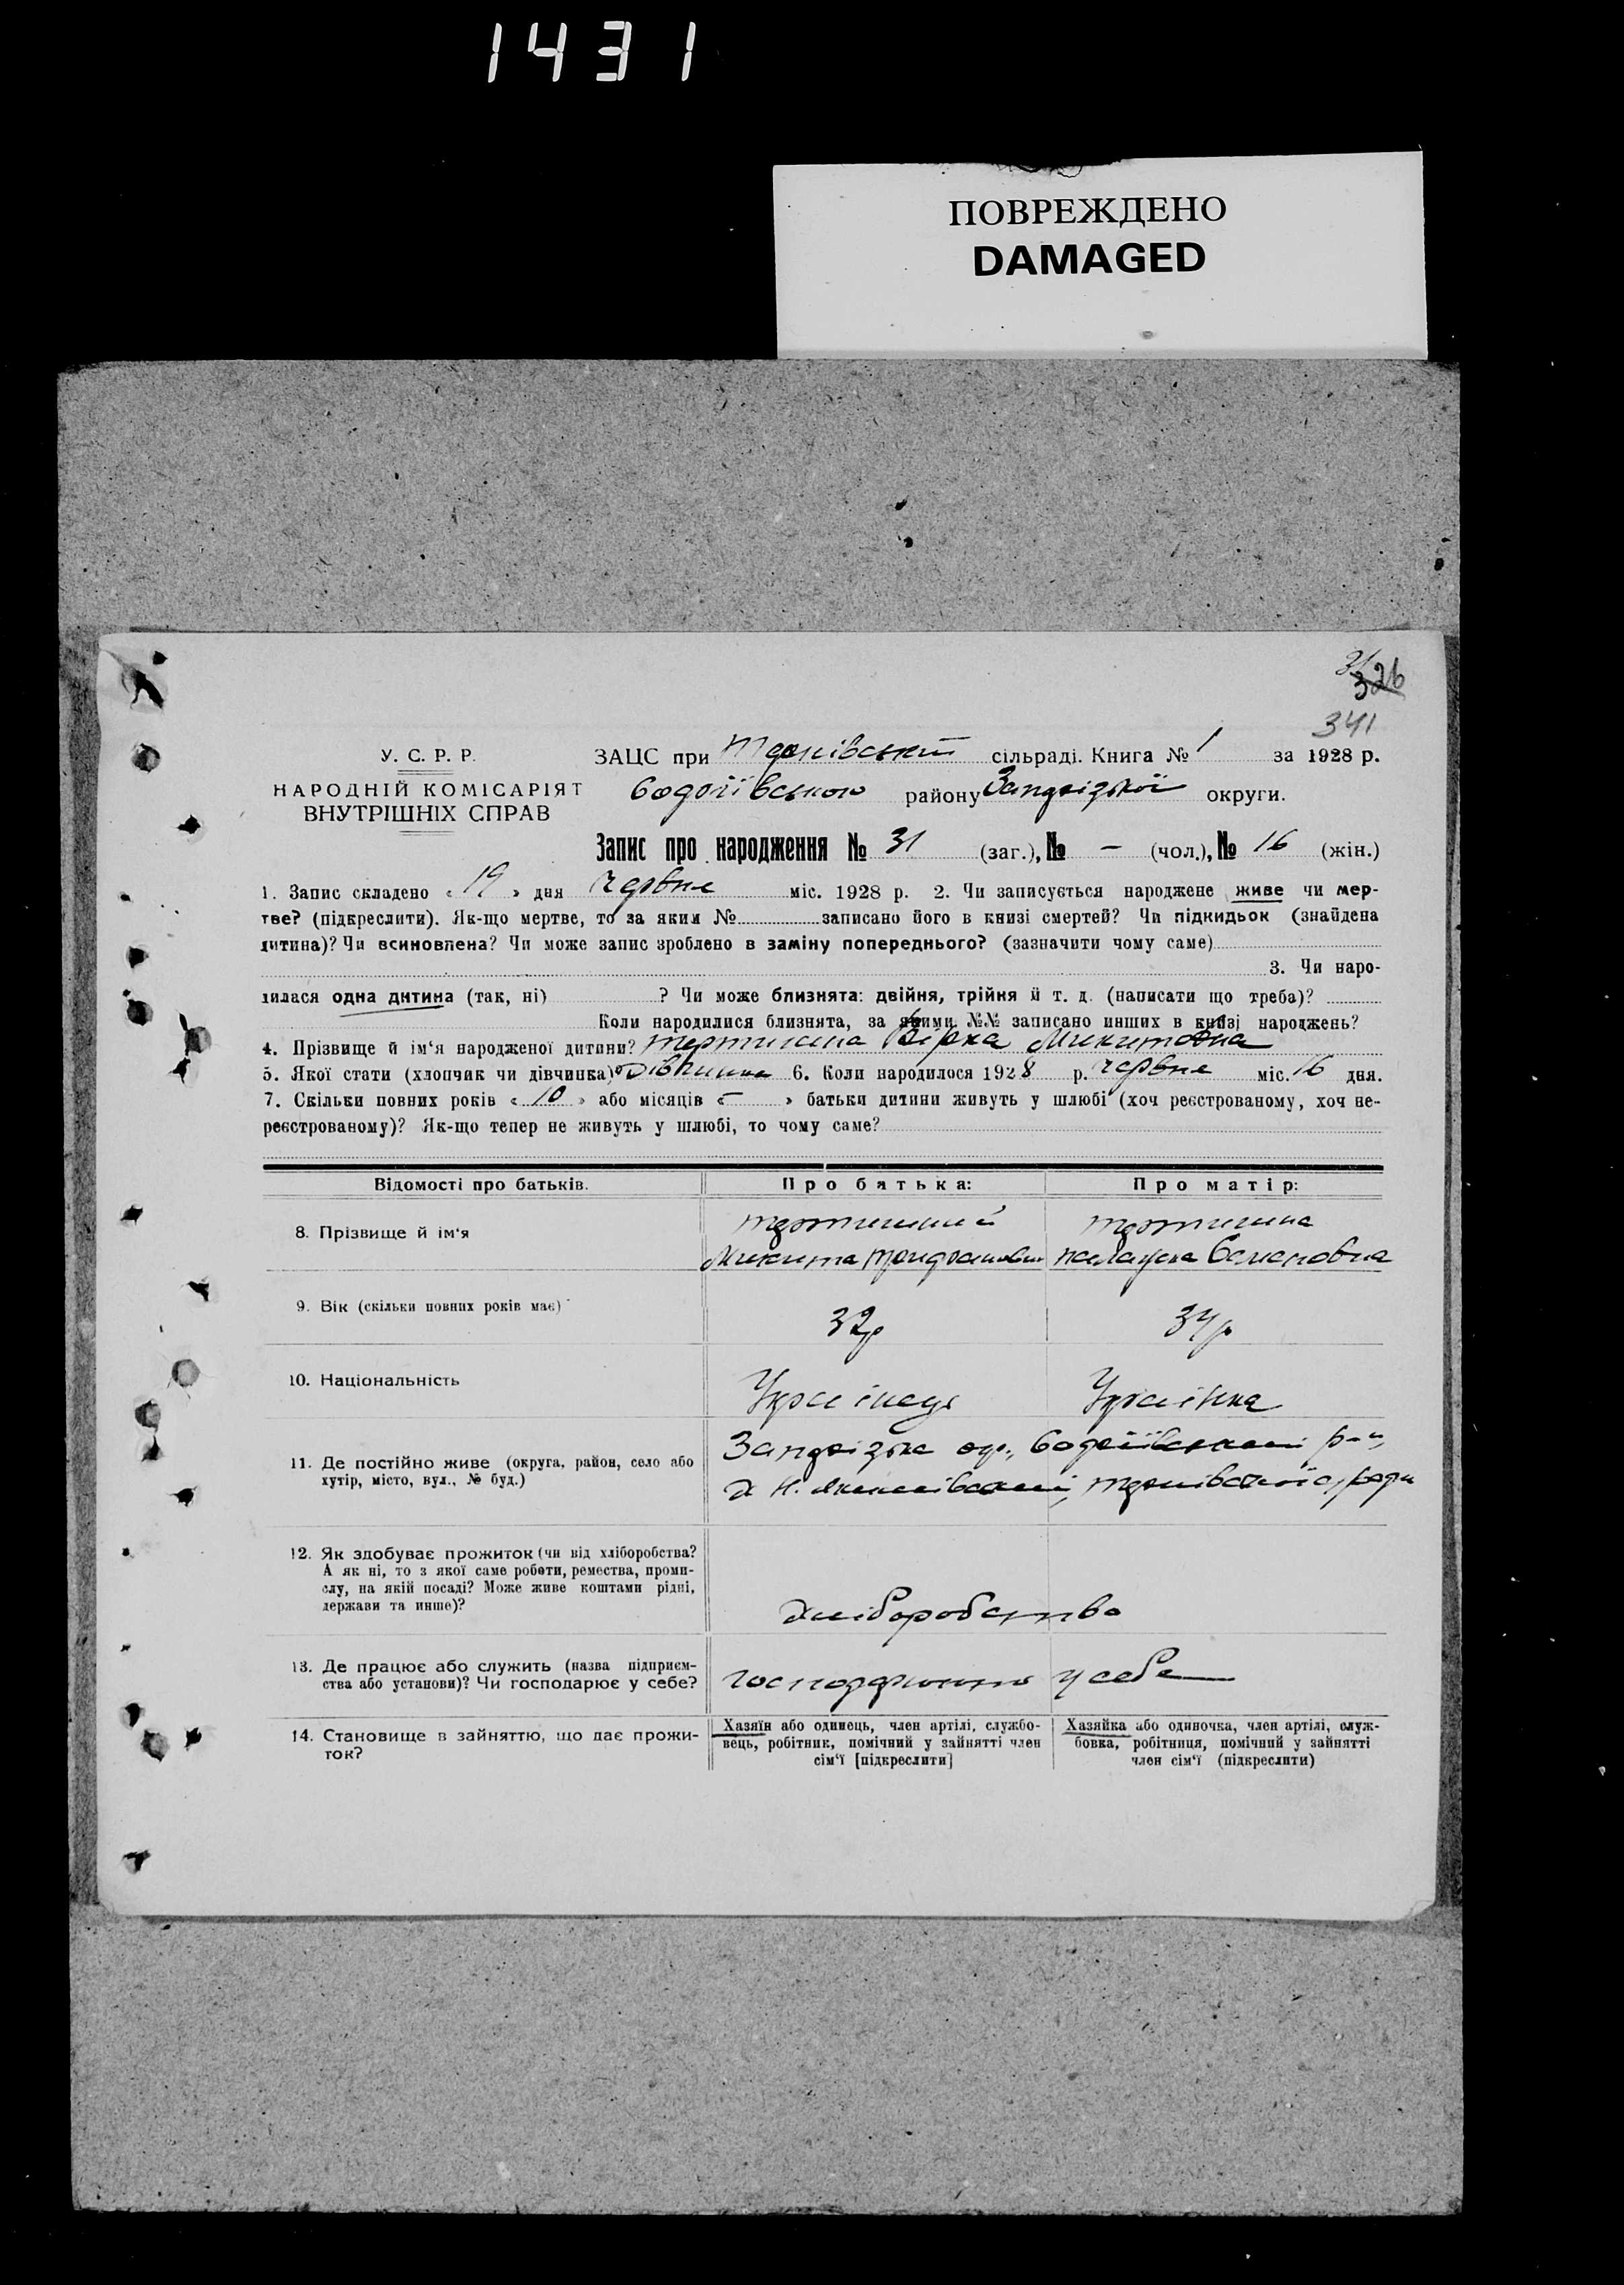 1431
ПОВРЕЖДЕНО
DAMAGED
31
326
341
У. С. Р. Р.
НАРОДНІЙ КОМІСАРІЯТ
ВНУТРІШНІХ СПРАВ
ЗАЦС при сільраді. Книга № 1 за 1928 р.
району Запорізької округи.
Запис про народження № 31 (заг.), № – (чол.), № 16 (жін.)
1. Запис складено « 19 » дня червня міс. 1928 р. 2. Чи записується народжене живе чи мер-
тве? (підкреслити). Як-що мертве, то за яким № записано його в книзі смертей? Чи підкидьок (знайдена
дитина)? Чи всиновлена? Чи може запис зроблено в заміну попереднього? (зазначити чому саме)
3. Чи наро-
дилася одна дитина (так, ні) ? Чи може близнята: двійня, трійня й т. д. (написати що треба)?
Коли народилися близнята, за якими №№ записано инших в книзі народжень?
4. Прізвище й ім‘я народженої дитини? Вірка Микитовна
5. Якої стати (хлопчик чи дівчинка)? Дівчинка 6. Коли народилося 1928 р. червня міс. 16 дня.
7. Скільки повних років « 10 » або місяців « – » батьки дитини живуть у шлюбі (хоч реєстрованому, хоч не-
реєстрованому)? Як-що тепер не живуть у шлюбі, то чому саме?
Відомості про батьків. Про батька: Про матір:
8. Прізвище й ім‘я
Микита Трифонович
9. Вік (скільки повних років має) 32р 34р
10. Національність Українець Українка
11. Де постійно живе (округа, район, село або
хутір, місто, вул., № буд.)
Запорізька окр., р-н,
х Н.
12. Як здобуває прожиток (чи від хліборобства?
А як ні, то з якої саме роботи, ремества, проми-
слу, на якій посаді? Може живе коштами рідні,
держави та инше)?
Хліборобство
13. Де працює або служить (назва підприєм-
ства або установи)? Чи господарює у себе?
у себе
14. Становище в зайняттю, що дає прожи-
ток?
Хазяїн або одинець, член артілі, службо-
вець, робітник, помічний у зайнятті член
сім‘ї [підкреслити]
Хазяйка або одиночка, член артілі, служ-
бовка, робітниця, помічний у зайнятті
член сім‘ї (підкреслити)